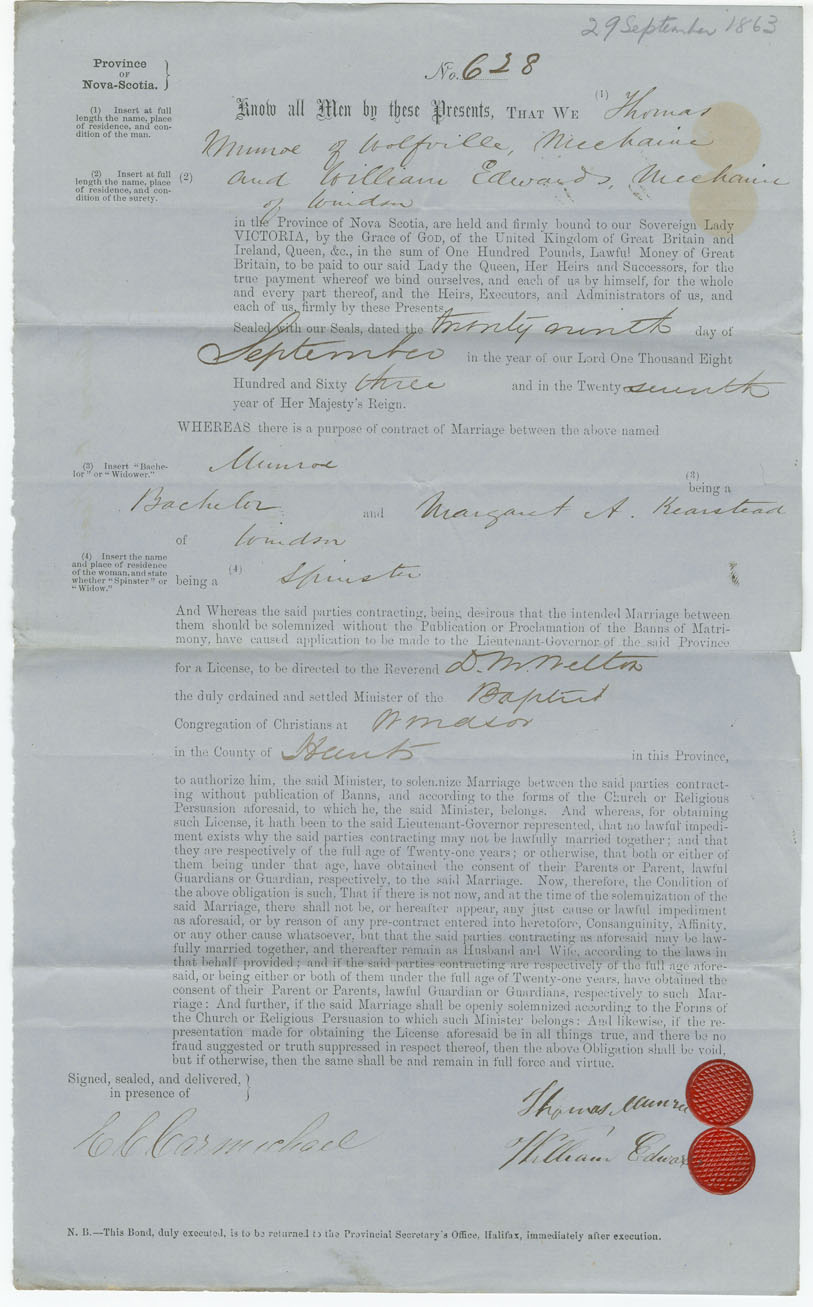 29 September 1863
Province
OF
Nova-Scotia.
No. 628
(1) Insert at full
length the name, place
of residence, and con-
dition of the man.
Know all Men by these Presents, THAT WE (1) Thomas
Munroe of Wolfville, Mechanic
(2) Insert at full
length the name, place
of residence, and con-
dition of the surety.
(2) and William Edwards, Mechanic
of Windsor
in the Province of Nova Scotia, are held and firmly bound to our Sovereign Lady
VICTORIA, by the Grace of GOD, of the United Kingdom of Great Britain and
Ireland, Queen, &c., in the sum of One Hundred Pounds, Lawful Money of Great
Britain, to be paid to our said Lady the Queen, Her Heirs and Successors, for the
true payment whereof we bind ourselves, and each of us by himself, for the whole
and every part thereof, and the Heirs, Executors, and Administrators of us, and
each of us, firmly by these Presents.
Sealed with our Seals, dated the twenty ninth day of
September in the year of our Lord One Thousand Eight
Hundred and Sixty three and in the Twenty seventh
year of Her Majesty's Reign.
WHEREAS there is a purpose of contract of Marriage between the above named
(3) Insert "Bache-
lor" or "Widower."
Munroe
(3)
being a
Bachelor and Margaret A. Kearstead
of Windsor
(4) Insert the name
and place of residence
of the woman, and state
whether "Spinster" or
"Widow."
being a (4) Spinster
And Whereas the said parties contracting, being desirous that the intended Marriage between
them should be solemnized without the Publication or Proclamation of the Banns of Matri-
mony, have caused application to be made to the Lieutenant-Governor of the said Province
for a License, to be directed to the Reverend D. M. Welton
the duly ordained and settled Minister of the Baptist
Congregation of Christians at Windsor
in the County of Hants in this Province,
to authorize him, the said Minister, to solemnize Marriage between the said parties contract-
ing without publication of Banns, and according to the forms of the Church or Religious
Persuasion aforesaid, to which he, the said Minister, belongs. And whereas, for obtaining
such License, it hath been to the said Lieutenant-Governor represented, that no lawful impedi-
ment exists why the said parties contracting may not be lawfully married together; and that
they are respectively of the full age of Twenty-one years; or otherwise, that both or either of
them being under that age, have obtained the consent of their Parents or Parent, lawful
Guardians or Guardian, respectively, to the said Marriage. Now, therefore, the Condition of
the above obligation is such, That if there is not now, and at the time of the solemnization of the
said Marriage, there shall not be, or hereafter appear, any just cause or lawful impediment
as aforesaid, or by reason of any pre-contract entered into heretofore, Consanguinity, Affinity,
or any other cause whatsoever, but that the said parties contracting as aforesaid may be law-
fully married together, and thereafter remain as Husband and Wife, according to the laws in
that behalf provided; and if the said parties contracting are respectively of the full age afore-
said, or being either or both of them under the full age of Twenty-one years, have obtained the
consent of their Parent or Parents, lawful Guardian or Guardians, respectively to such Mar-
riage: And further, if the said Marriage shall be openly solemnized according to the Forms of
the Church or Religious Persuasion to which such Minister belongs: And likewise, if the re-
presentation made for obtaining the License aforesaid be in all things true, and there be no
fraud suggested or truth suppressed in respect thereof, then the above Obligation shall be void,
but if otherwise, then the same shall be and remain in full force and virtue.
Signed, sealed, and delivered,
in presence of
Thomas Munroe
E C Carmichael
William Edwar
N. B.—This Bond, duly executed, is to be returned to the Provincial Secretary's Office, Halifax, immediately after execution.